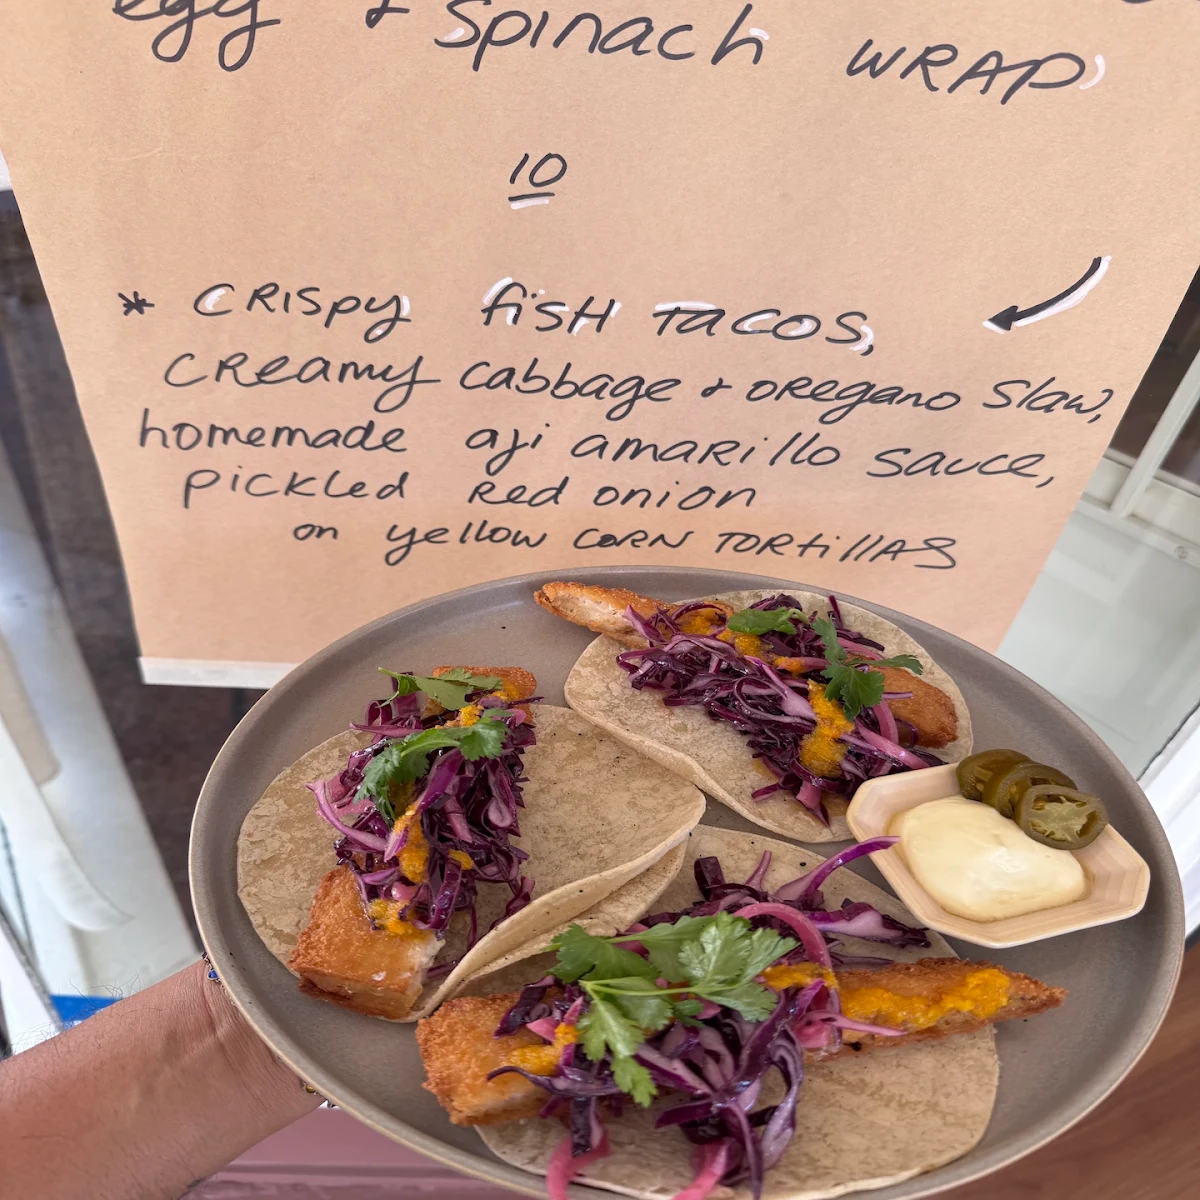 egg & Spinach WRAP
10
* CRISpy fiSH TACOS,
CReamy Cabbage & ORegano Slaw,
homemade aji amaRillo sauce,
pickled Red onion
on yellow CORN TORtillAS